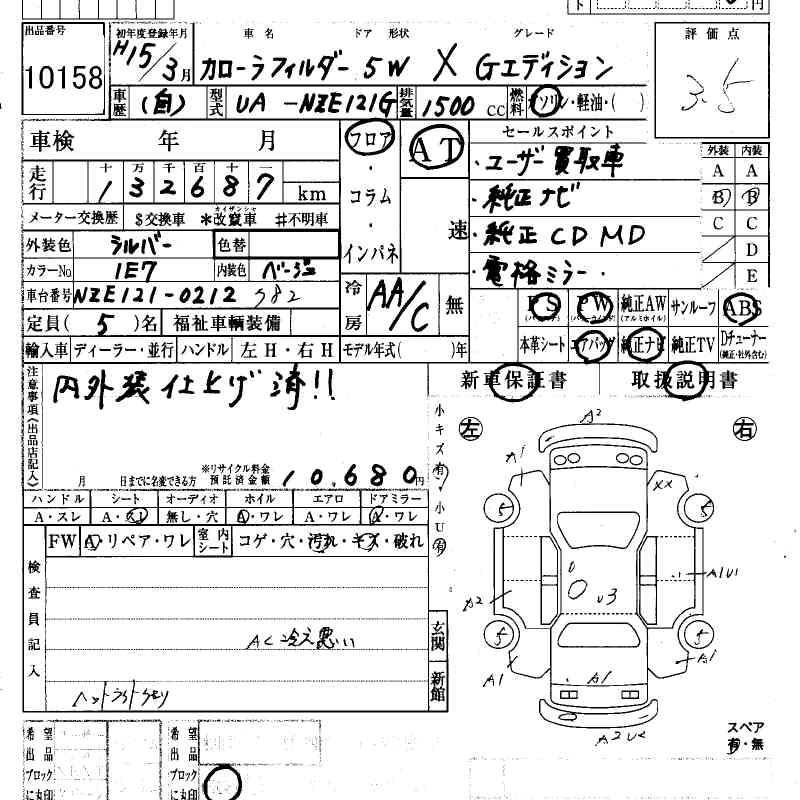 出品番号 初年度登録年月 車名 ドア 形状 グレード 評価点
10158 H15/3月 カローラフィルダー 5W X Gエディション 3.5
車歴 (自) 型式 UA-NZE121G 排気量 1500cc 燃料 ガソリン・軽油・( )
車検 年 月 フロア AT セールスポイント
・ユーザー買取車 外装 内装
走行 十 万 千 百 十 一
132687 km ・コラム ・純正ナビ
A A
B B
C C
D
E
メーター交換歴 $交換車 *改竄車(カイザンシャ) #不明車
外装色 シルバー 色替 ・インパネ 速 ・純正CD MD
カラーNo 1E7 内装色 ベージュ ・電格ミラー・
車台番号 NZE121-0212982 冷房 AA/C 無
PS PW(パワーウインド) 純正AW(アルミホイル) サンルーフ ABS
定員(5)名 福祉車輌装備
本革シート エアバッグ 純正ナビ 純正TV Dチューナー(純正・社外含む)
輸入車 ディーラー・並行 ハンドル 左H・右H モデル年式( )年
新車保証書 取扱説明書
注意事項(出品店記入)
内外装仕上げ済!!
月 日までに名変できる方 ※リサイクル料金預託済金額 10,680円
小キズ(有)・小U(有)
ハンドル シート オーディオ ホイル エアロ ドアミラー
A・スレ A・スレ 無し・穴 A・ワレ A・ワレ A・ワレ
FW A・リペア・ワレ 室内シート コゲ・穴・汚れ・キズ・破れ
検査員記入
AC冷え悪い
ヘッドライトクモリ
玄関
新館
左 右
A2
A1 XX
5 5
A1U1
A2 U3
5 5
A1 A1 A1
スペア
有・無
希望出品ブロックに丸印
希望出品ブロックに丸印